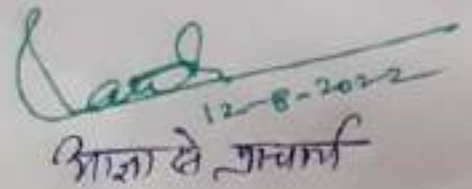 12-8-2022
आज्ञा से प्राचार्य